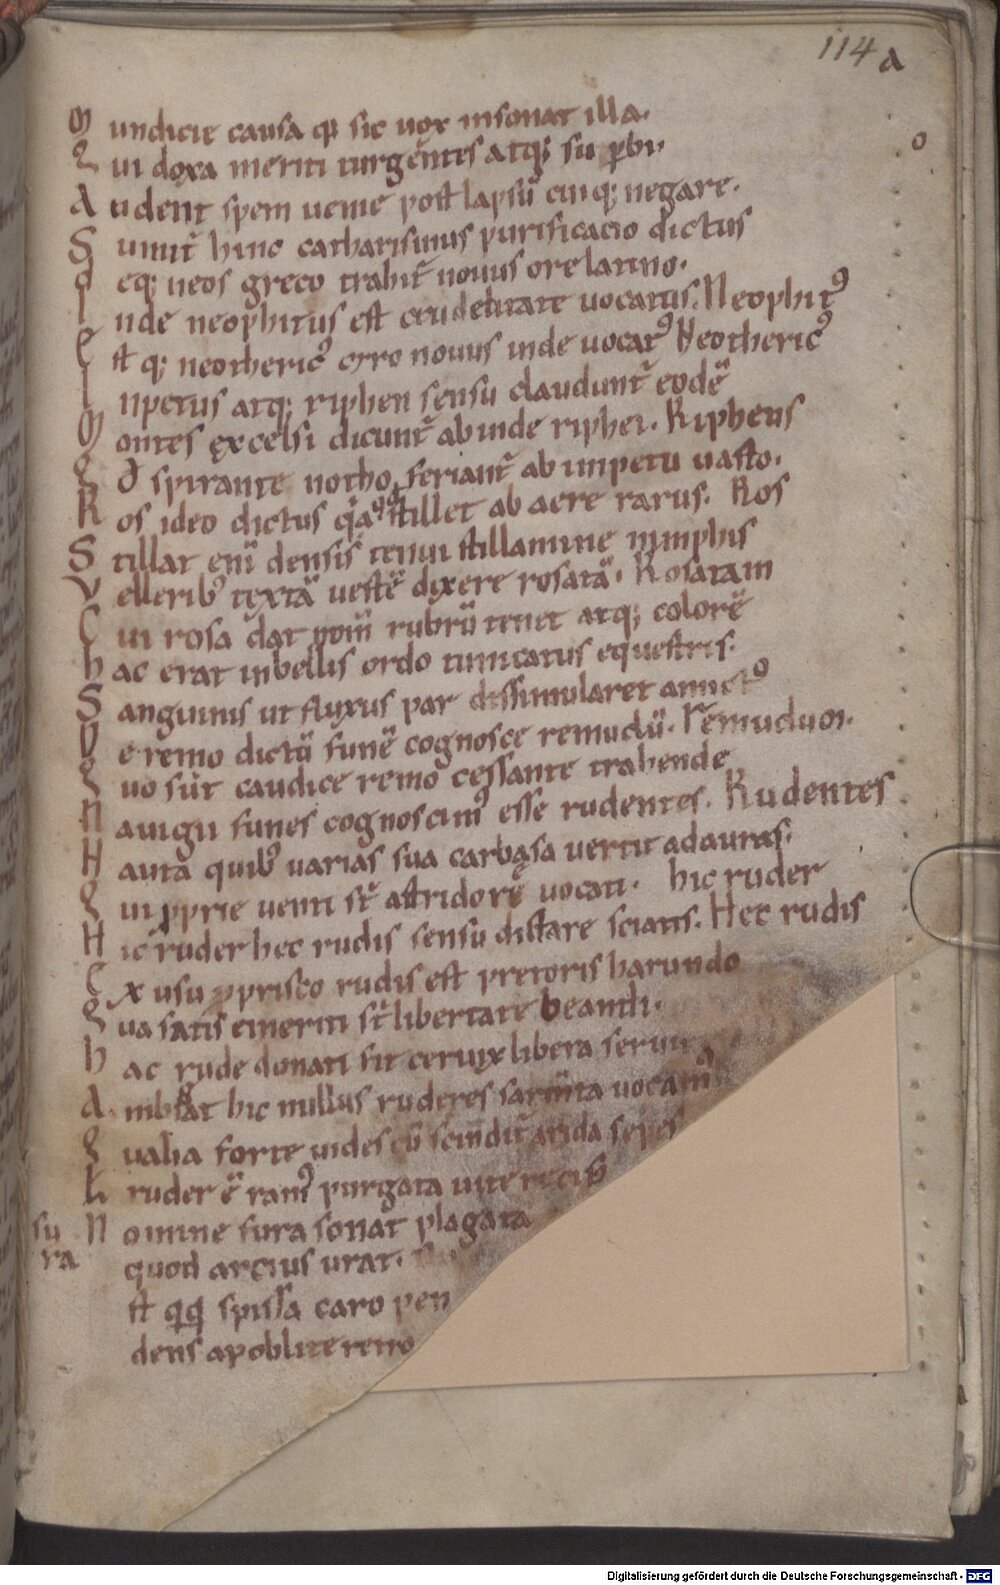 114 a
M undicie causa qp sic uox insonat illa.
Q ui doxa meriti turgentes atq; supbi.
A udent spem uenie post lapsū cuiq; negare.
S umit̄ hinc catharismus purificacio dictus
o
D eq; neos greco trahit̄ nouus ore latino.
I nde neophitus est crudelitate uocatus. Neophitꝰ
E st q; neothericꝰ orro nouus inde uocatꝰ Neothericꝰ
I npetus atq; riphen sensu claudunt̄ eodē
M ontes excelsi dicunt̄ ab inde riphei. Ripheus
Q d spirante notho feriant̄ ab impetu uasto.
R os ideo dictus qa stillet ab aere rarus. Ros
S tillat enī densis tenui stillamine nimphis
V elleribꝰ textā uestē dixere rosatā. Rosatam
C ui rosa dat nom̄ rubrū tenet atq; colorē
h ac erat in bellis ordo tunicatus equestris.
S anguinis ut fluxus par dissimularet amictꝰ
D e remo dictū funē cognosce remudū. Remuduꝫ.
Q uo sūt caudice remo cessante trahende
N auigii funes cognoscimꝰ esse rudentes. Rudentes
H auta quibꝰ uarias sua carbasa uertit ad auras.
Q ui pprie uenti st̄ a stridorē uocati. hic ruder
H ic ruder hec rudis sensu distare sciatis. Hec rudis
E x usu pprisco rudis est pretoris harundo
Q ua satis emeriti st̄ libertate beandi.
h ac rude donati sit ceruix libera
A mbigat hic nullus ruderes sarmta uocamꝰ
Q ualia forte uides cū scindit̄ arida sepes
h ruder ē ramꝰ purgata uite recisꝰ
su ra
N omine sura sonat plagata
quod arcius urat.
st qq spissa caro pen
dens a poblite retro
Digitalisierung gefördert durch die Deutsche Forschungsgemeinschaft - DFG